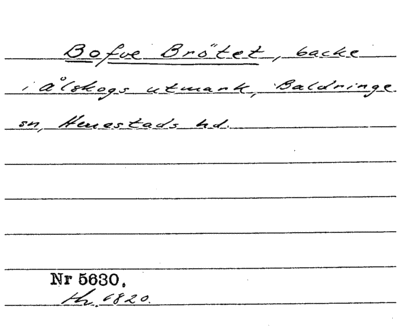 Bofve Brötet, backe
i Ålskogs utmark, Baldringe
sn, Herrestads hd.
Nr 5630.
1820.